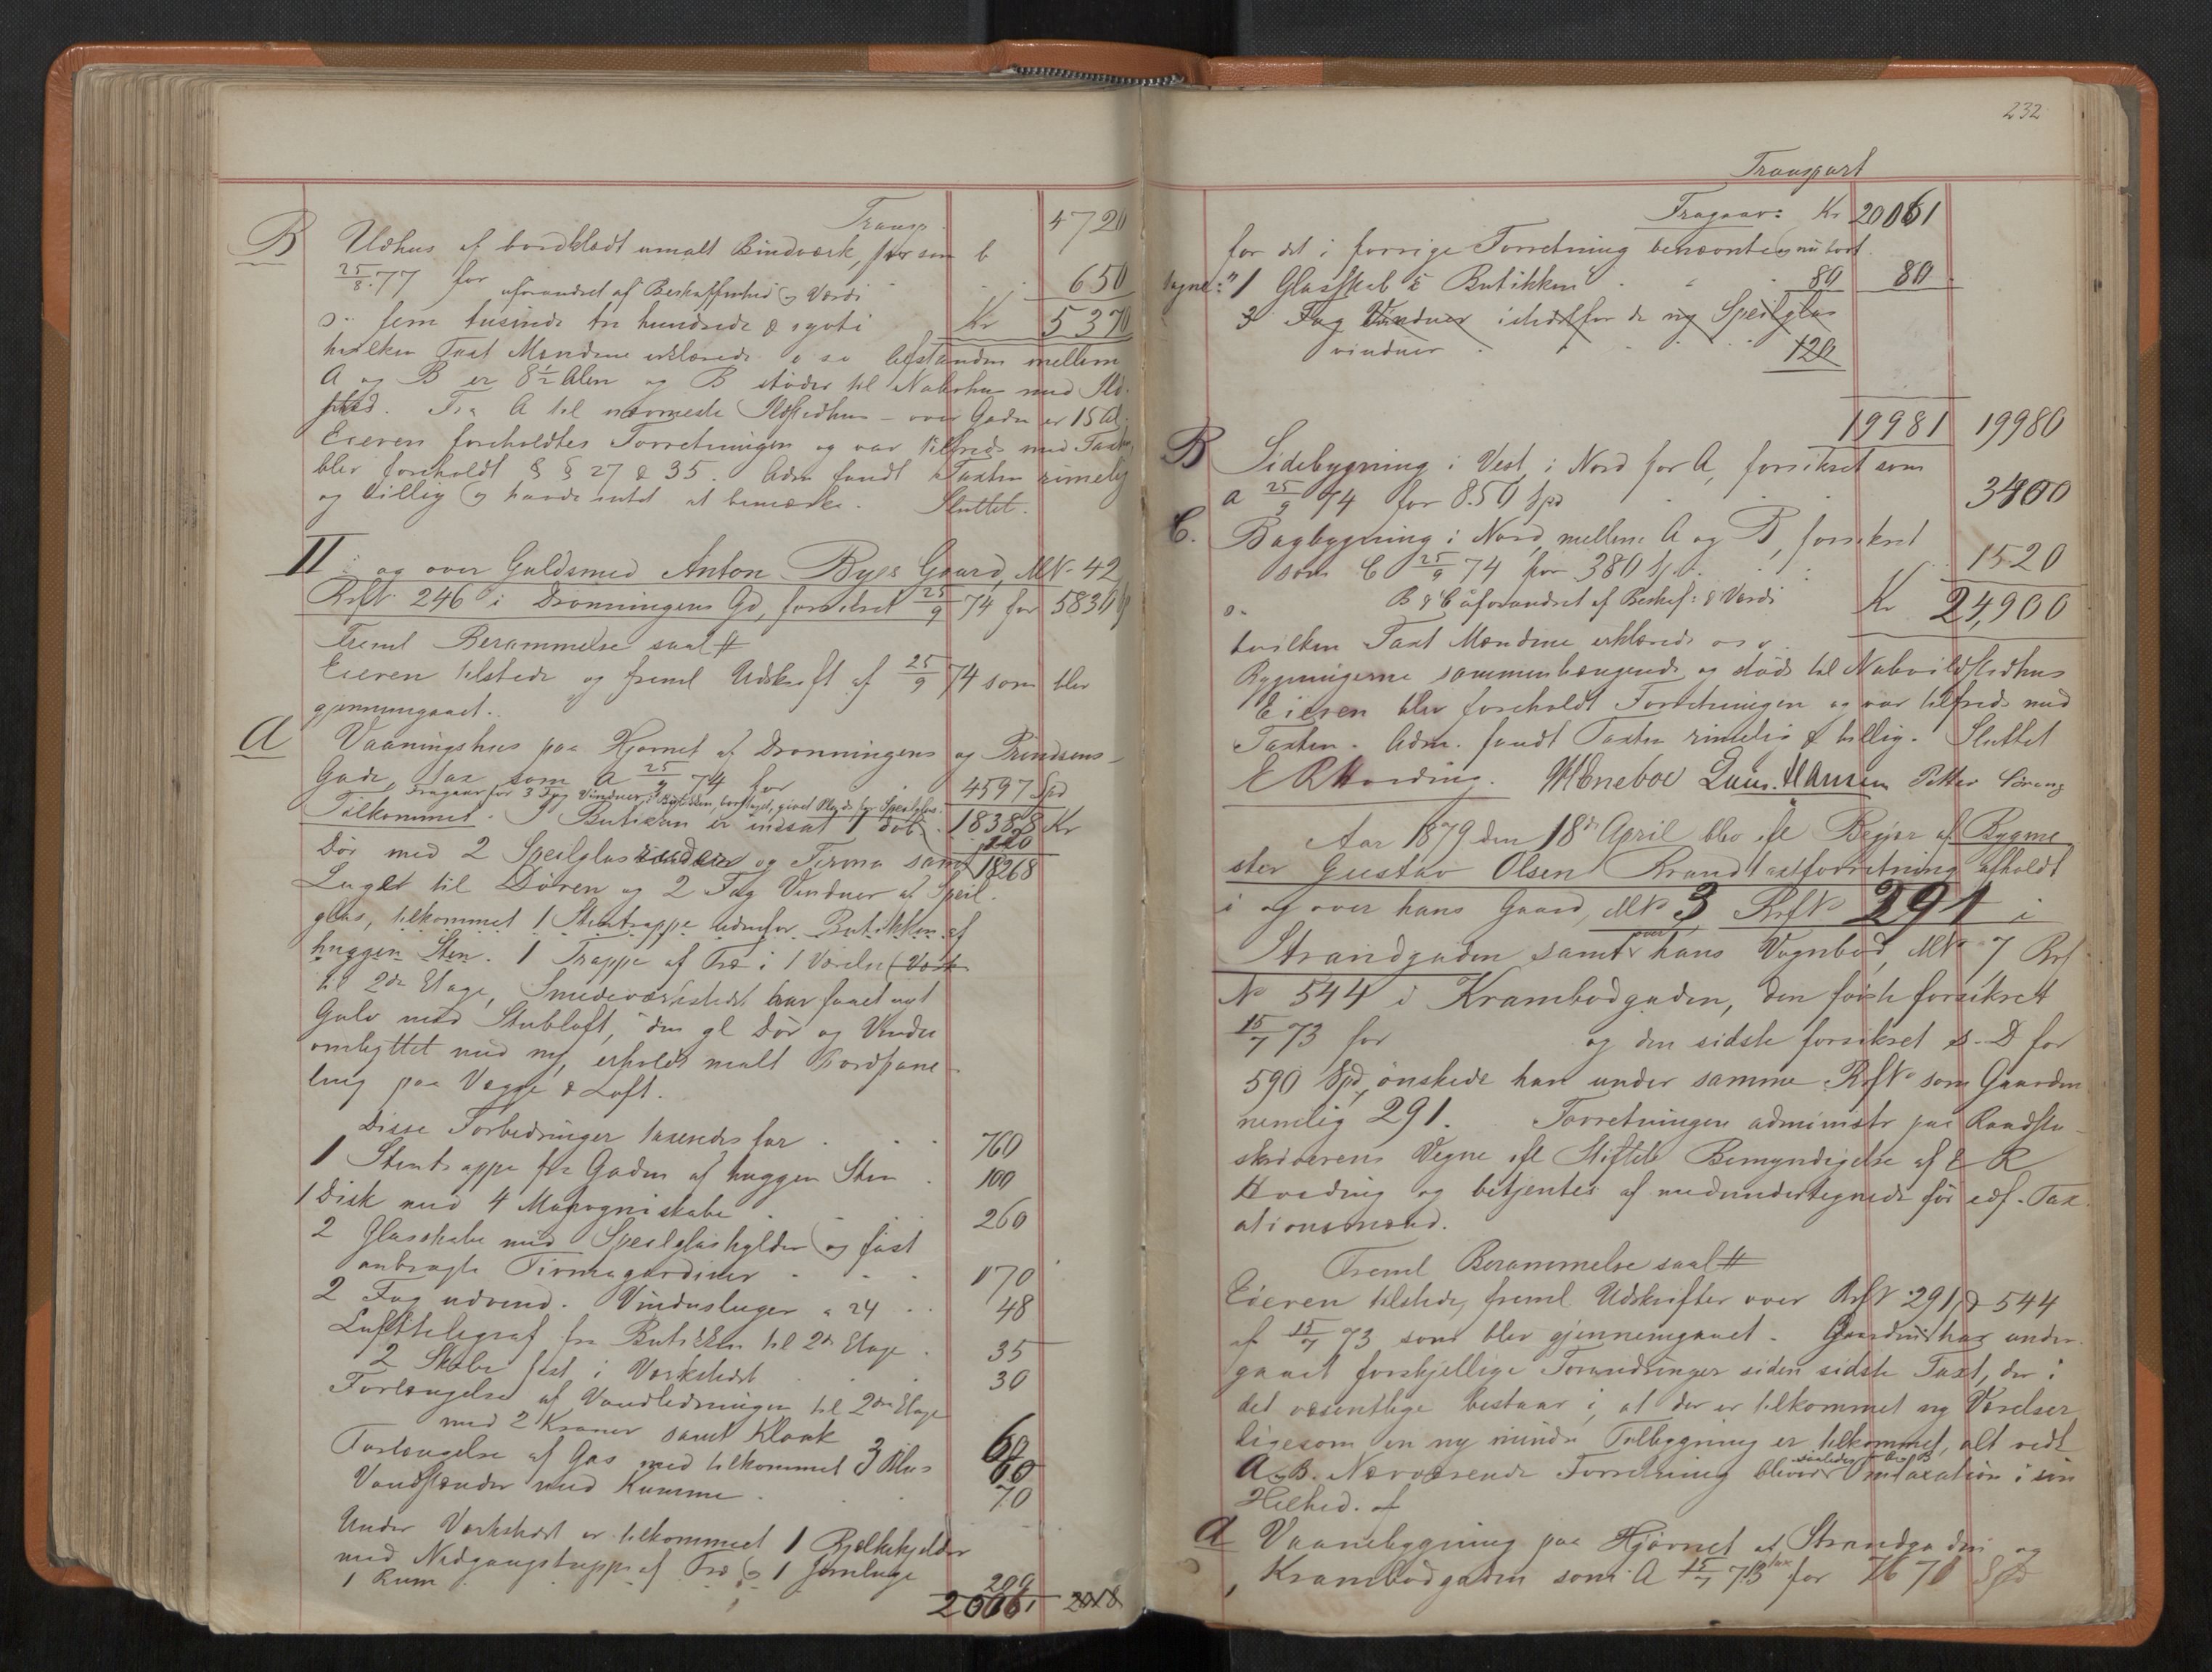 Transp. 4720
B Udhus af bordklædt umalt Bindværk, som b
25/8 77 for uforandret af Beskaffenhed og Værdi 650
o: fem tusinde tre hundrede & sytti Kr 5370
hvilken Taxt Mændene erklærede o s v Afstanden mellem
A og B er 8½ Alen og B støder til Nabohus med Ild-
sted. Fra A til nærmeste Ildstedhus - over Gaden er 15 Al.
Eieren foreholdtes Forretningen og var tilfreds med Taxten
blev foreholdt § § 27 & 35. Adm fandt Taxten rimelig
og billig og havde intet at bemærke. Sluttet.
II i og over Guldsmed Anton Byes Gaard, MN- 42
Brft 246 i Dronningens Gd, forsikret 25/9 74 for 5830
Freml Berammelse saal #
Eieren tilstede og freml Udskrift af 25/9 74 som blev
gjennemgaaet.
A Vaaningshus paa Hjørnet af Dronningens og Prindsens
Gade, tax som A 25/9 74 for 4597 Spd
Fragaar for 3 Fag Vinduer i Butikken, borttaget, givet Plads for Speilglas.
Tilkommet. I Butikken er indsat 1 dob. 18388 Kr
120
Dør med 2 Speilglasruder og Firma samt 18268
Luger til Døren og 2 Fag Vinduer af Speil-
glas, tilkommet 1 Stentrappe udenfor Butikken af
huggen Sten. 1 Trappe af Træ i 1 Værelse
til 2den Etage, Smedeværkstedet har faaet nyt
Gulv med Stubloft, den gl Dør og Vindu
ombyttet med ny, erholdt malt Bordpane-
ling paa Vægge & Loft.
Disse Forbedringer taxeredes for 760
1 Stentrappe fra Gaden af huggen Sten 100
1 Disk med 4 Mahogniskabe 260
2 Glasskabe med Speilglashylder og fast
anbragte Firmagardiner 170
2 Fag udvend. Vinduesluger a 24 48
Lufttelegraf fra Butikken til 2den Etage 35
2 Skabe fast i Værkstedet 30
Forlængelse af Vandledningen til 2den Etage
med 2 Kraner samt Kloak 60
Forlængelse af Gas med tilkommet 3 Blus 60
Vandstænder med Kumme 70
Under Værkstedet er tilkommet 1 Bjelkekjelder
med Nedgangstrappe af Træ og 1 Jernluge
1 Rum 200
20061 2018
232
Transport
Fragaar: Kr 20061
for det i forrige Forretning benævnte og nu bort
tagne: 1 Glasskab i Butikken 80 80
3 Fag Vinduer istedetfor de ny Speilglas
vinduer 120
19981 19980
B Sidebygning i Vest, i Nord for A, forsikret som
a 25/9 74 for 850 Spd 3400
C. Bagbygning i Nord mellem A og B, forsikret
som C 25/9 74 for 380 Spd 1520
B & C uforandret af Beskaf: & Værdi
o- Kr 24,900
hvilken Taxt Mændene erklærede o s v.
Bygningerne sammenhængende og støde til Naboildstedhus
Eieren blev foreholdt Forretningen og var tilfreds med
Taxten. Adm. fandt Taxten rimelig & billig. Sluttet
E R Hvoding. Moneboe Louis Hansen Petter
Aar 1879 den 18de April blev efl Begjær af Bygme
ster Gustav Olsen Brandtaxtforretning afholdt
i og over hans Gaard, MNo 3 Brft No 291 i
Strandgaden samt over hans Vognbod, MNo 7 Brf
No 544 i Krambodgaden, den første forsikret
15/7 73 for og den sidste forsikret s. D for
590 Spd, ønskede han under samme BrftNo som Gaarden
nemlig 291. Forretningen administr paa Raadstu
skriverens Vegne efl Stiftets Bemyndigelse af E R
Hvoding og betjentes af medundertegnede før edf. Tax
ationsmænd.
Freml Berammelse saal #
Eieren tilstede, freml Udskrifter over Brft 291 & 544
af 15/7 73 som blev gjennemgaaet. Gaarden har under-
gaaet forskjellige Forandringer siden sidste Taxt, der i
det væsentlige bestaar i, at der er tilkommet ny Værelser
ligesom en ny mindre Tilbygning er tilkommet, alt vedk
A & B. Nærværende Forretning bliver saaledes Omtaxation i sin
Helhed. af
A Vaanebygning paa Hjørnet af Strandgaden og
Krambodgaden som A 15/7 73 tax for 7670 Spd